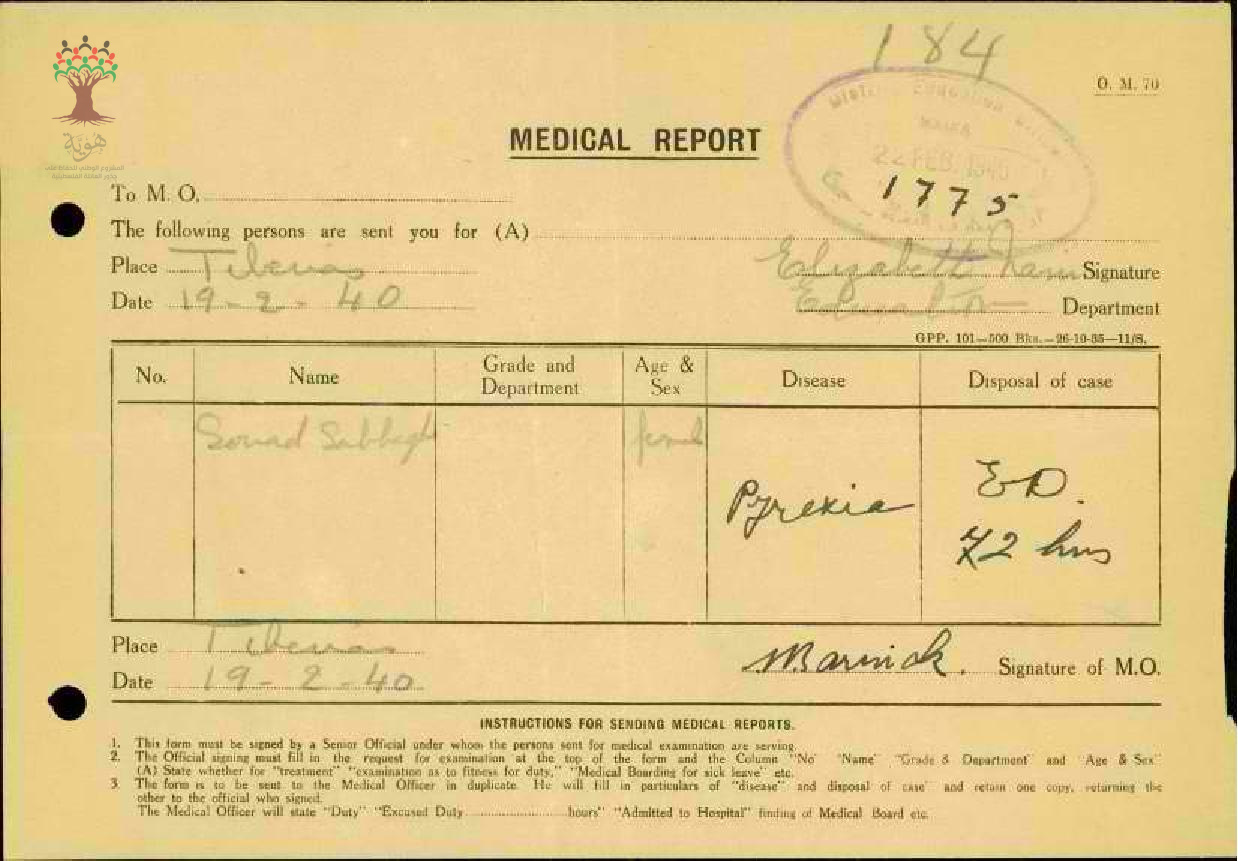 184
O. M. 70
هوية
MEDICAL REPORT
22 FEB. 1940
1775
To M. O.
The following persons are sent you for (A)
Place Tiberias
Elizabeth Signature
Date 19-2-40
Education Department
GPP. 101—500 Bks.—26-10-35—11/S.
No. Name Grade and Department Age & Sex Disease Disposal of case
Souad Sabbagh
Pyrexia ED.
72 hrs
Place Tiberias
Signature of M.O.
Date 19-2-40
INSTRUCTIONS FOR SENDING MEDICAL REPORTS.
1. This form must be signed by a Senior Official under whom the persons sent for medical examination are serving.
2. The Official signing must fill in the request for examination at the top of the form and the Column "No" "Name" "Grade & Department" and "Age & Sex"
(A) State whether for "treatment" "examination as to fitness for duty," "Medical Boarding for sick leave" etc.
3. The form is to be sent to the Medical Officer in duplicate. He will fill in particulars of "disease" and disposal of case" and retain one copy, returning the
other to the official who signed.
The Medical Officer will state "Duty" "Excused Duty..........hours" "Admitted to Hospital" finding of Medical Board etc.